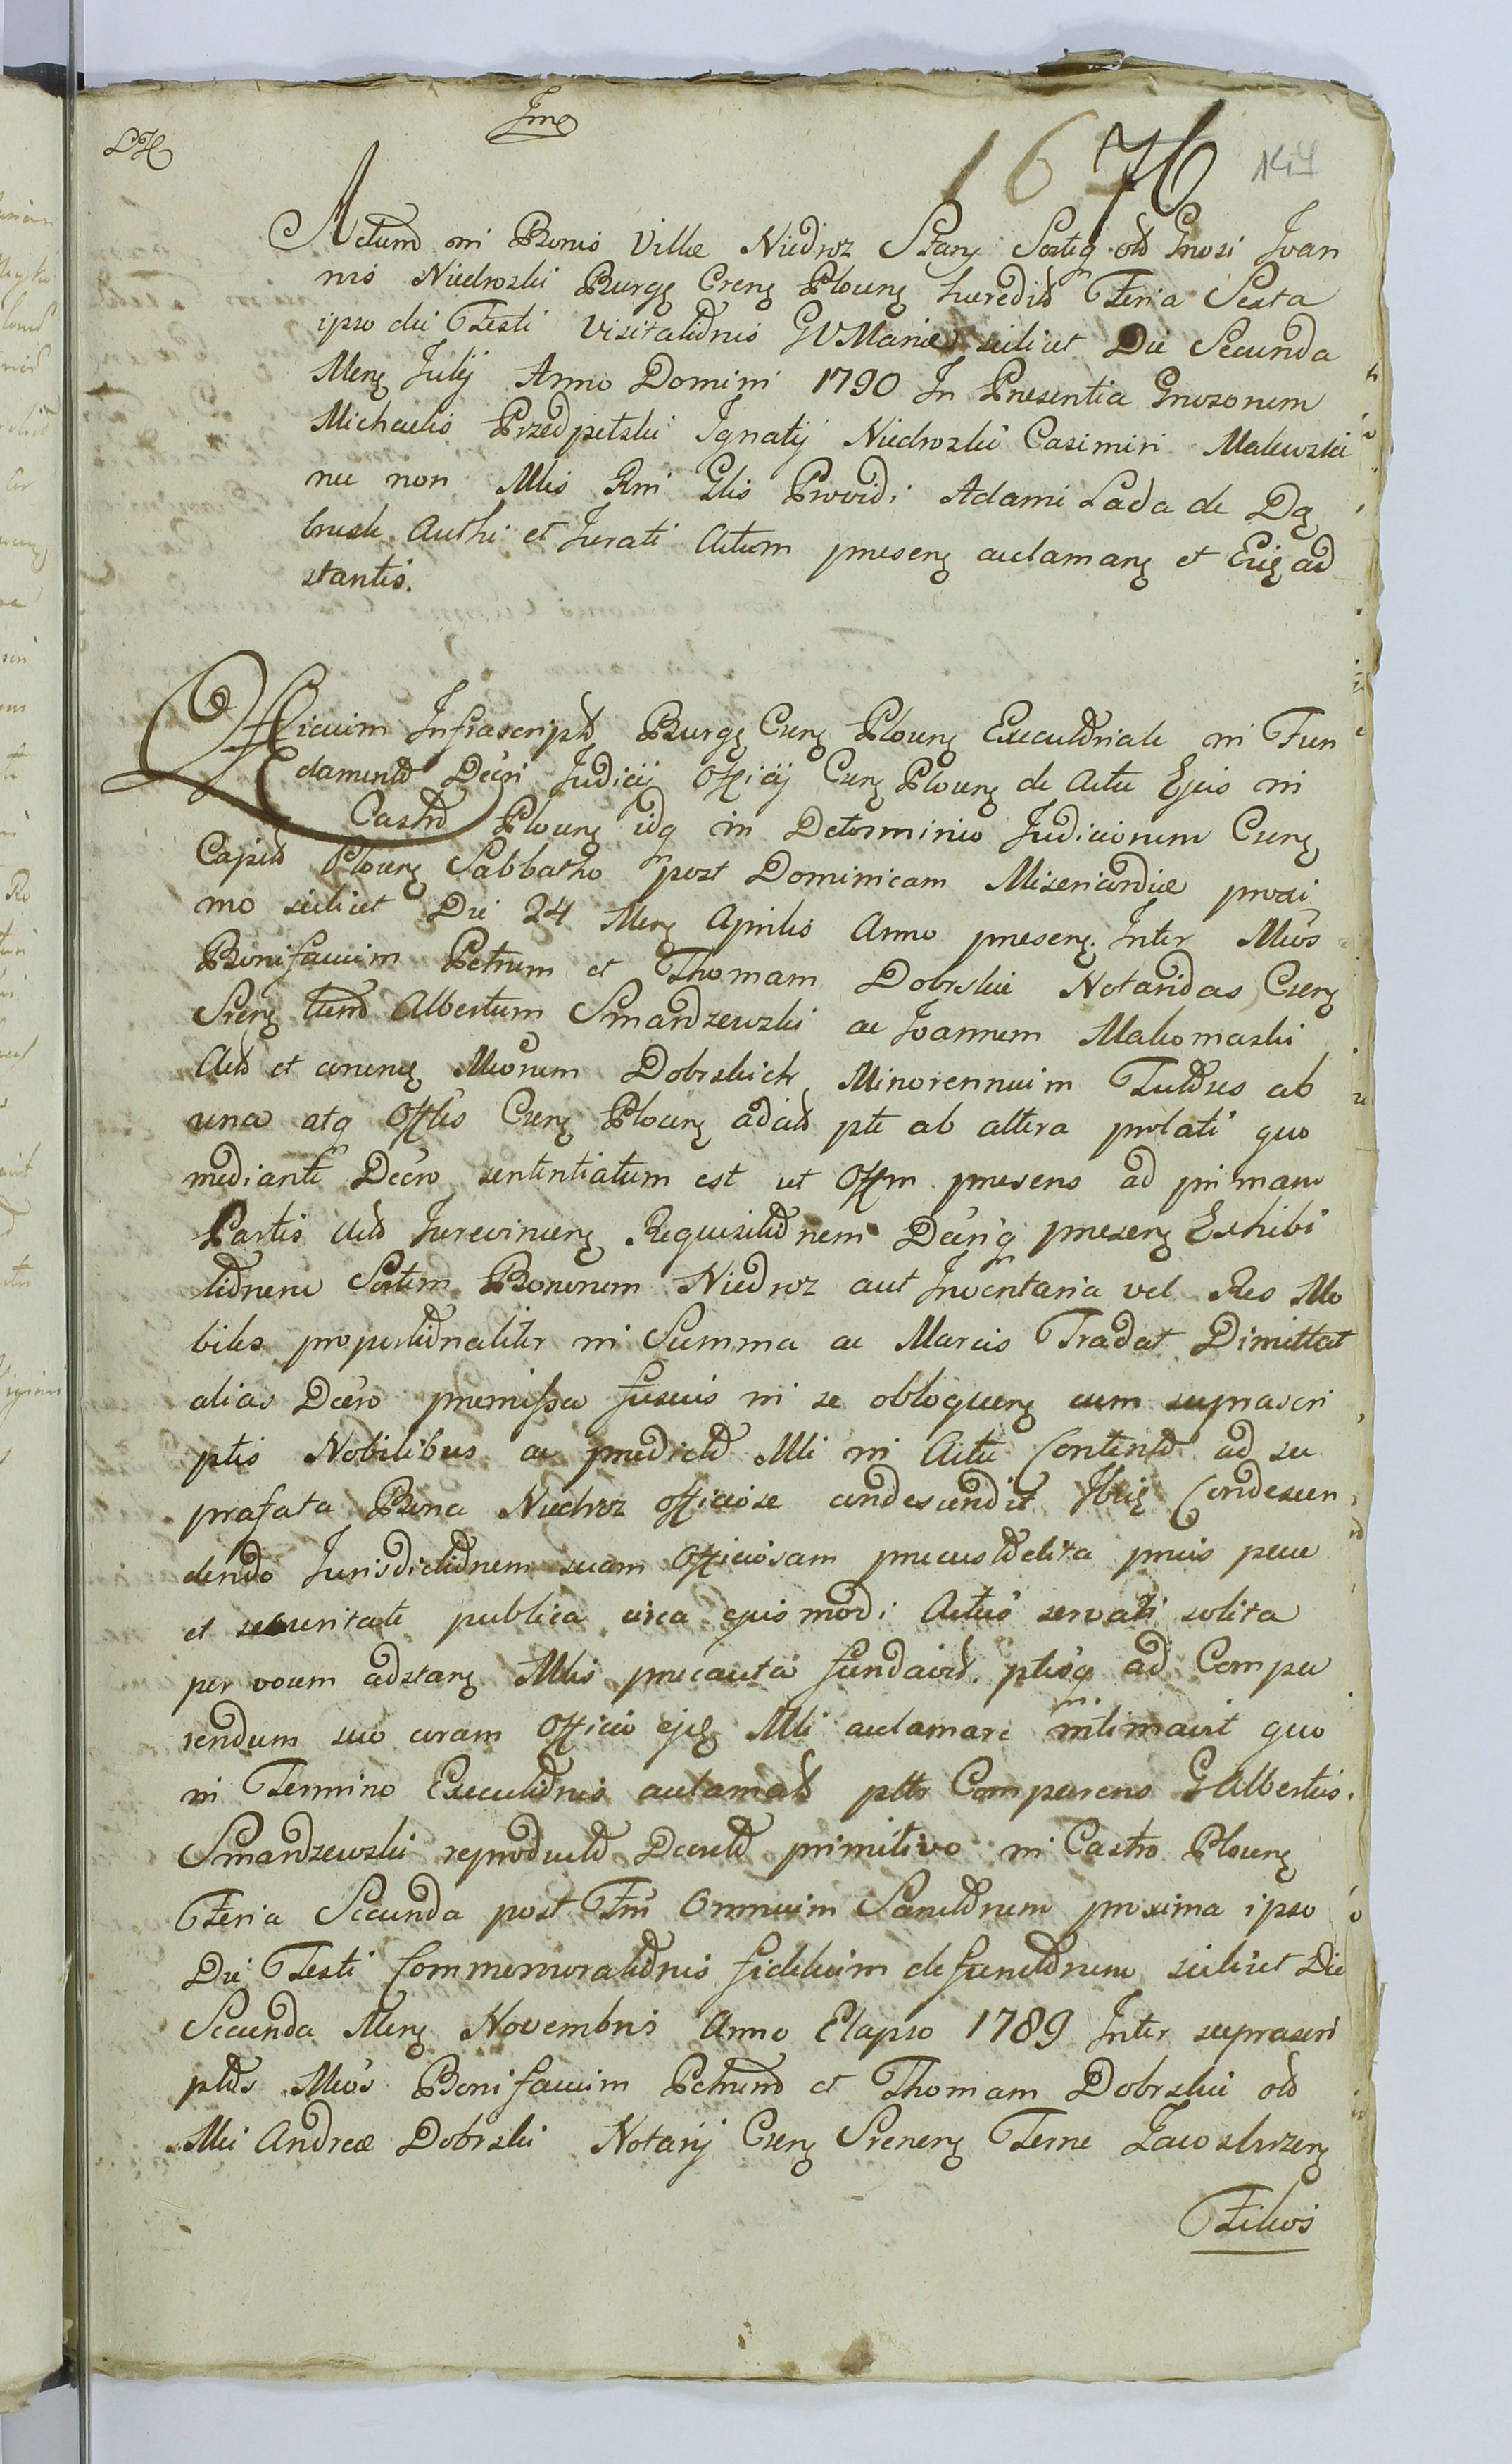 Im
LH
1676 147
Actum in Bonis Villæ Niedroz Stary Sortis old Gnosi Joan
nis Niedroski Burgs Crens Plocens hæredis Feria Sexta
ipso die Festi Visitationis GVMariæ scilicet Die Secunda
Mens July Anno Domini 1790 In Præsentia Gnosorum
Michaelis Przedpełski Ignatij Niedroski Casimiri Malewski
nec non Mlis Rni Glis Providi Adami Lada de Dą
brusk Authi et Jurati Actum præsens acclamans et Eis ad
stantis.
Officium Infrascript Burgs Crens Plocens Executoriale in Fun
damento Decri Judicij Officij Crens Plocens de Actu Ejus in
Castro Plocens idq in Determinio Judiciorum Crens
Capit Plocens Sabbatho post Dominicam Misericordiæ proxi
mo scilicet Die 24 Mens Aprilis Anno præsens. Inter Mcos
Bonifacium Petrum et Thomam Dobrskie Notaridas Crens
Srens tum Albertum Smardzewski ac Joannem Makomaski
Act et coruns Mcorum Dobrskich Minorennium Tutores ab
una atq Offlis Crens Plocens adcit pte ab altera prolati quo
mediante Decro sententiatum est ut Offm præsens ad primam
Partis Act Jurevincens Requisitionem Decriq præsens Exhibi
tionem Sortem Bonorum Niedroz aut Inventaria vel Res Mo
biles proportionaliter in Summa ac Marcis Tradat Dimittat
alias Decro præmisso fusius in se obloquens cum suprascri
ptis Nobilibus ac prædicto Mli in Actu Contento ad su
prafata Bona Niedroz officiose condescendit Ibiq Condescen
dendo Jurisdictionem suam Officiosam præcustodita prius pace
et securitate publica circa ejusmodi Actus servati solita
per vocem adstans Mlis præcauta fundavit ptesq ad Compa
rendum suo coram Officio ejsq Mli acclamare intimavit quo
in Termino Executionis acclamato pttr Comparens G Albertus
Smardzewski reproducto Decreto primitivo in Castro Plocens
Feria Secunda post Fm Omnium Sanctorum proxima ipso
Die Festi Commemorationis fidelium defunctorum scilicet Die
Secunda Mens Novembris Anno Elapso 1789 Inter suprascri
ptos Mcos Bonifacium Petrum et Thomam Dobrskie old
Mci Andreæ Dobrski Notarij Crens Srenens Terræ Zawskrzens
Filios